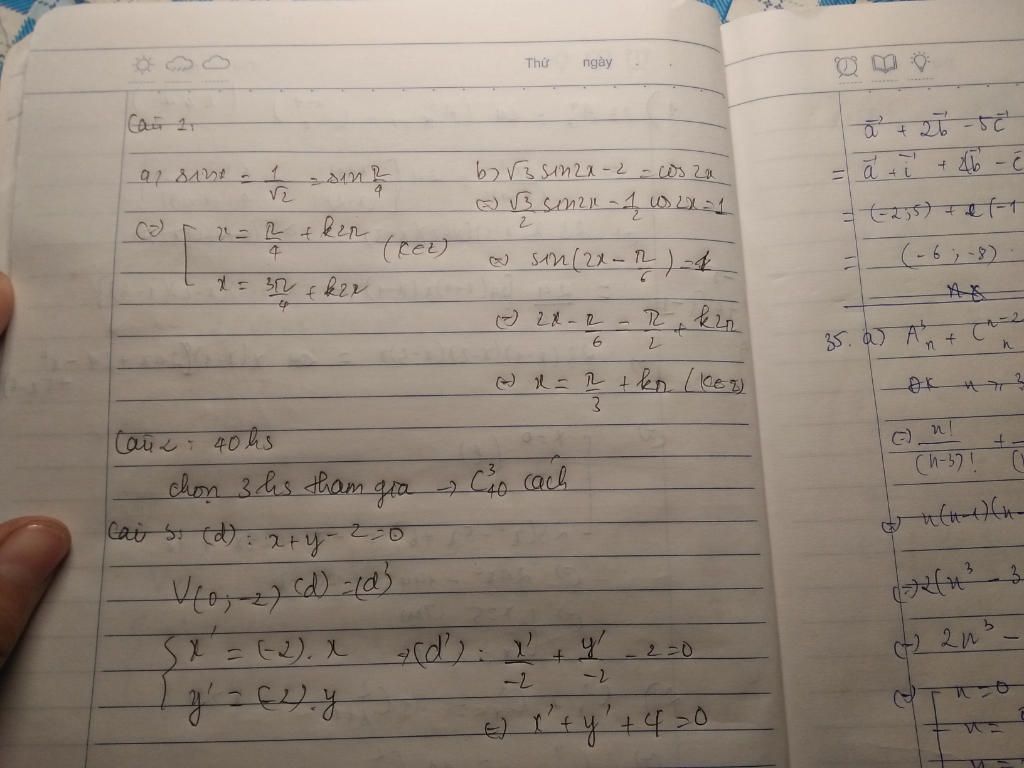 Thứ ngày
Câu 1.
a, sinx = 1/√2 = sin π/4
(=) [ x = π/4 + k2π
x = 3π/4 + k2π (k∈Z)
b, √3 sin2x - 2 = cos 2x
(=) √3/2 sin2x - 1/2 cos 2x = 1
(=) sin(2x - π/6) = 1
(=) 2x - π/6 = π/2 + k2π
(=) x = π/3 + kπ (k∈Z)
Câu 2: 40 hs
chọn 3 hs tham gia → C³₄₀ cách
Câu 3: (d): x + y - 2 = 0
V(0; -2) (d) = (d')
{ x' = (-2). x
y' = (-2). y
→ (d'): x'/-2 + y'/-2 - 2 = 0
(=) x' + y' + 4 = 0
a⃗ + 2b⃗ - 5c⃗
= (-2;5) +
= (-6; -8)
35. a) A³n + C n-2 n
ĐK n ≥ 3
(=) n!/(n-3)! +
(=) n(n-1)(n-
(=) 2(n³ - 3
(=) 2n³ -
(=) [ n = 0
n =